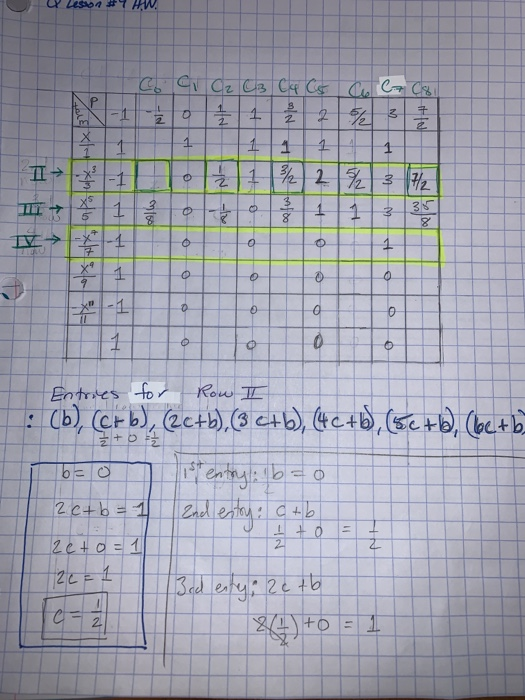 Lesson #4 H.W.
C₀ C₁ C₂ C₃ C₄ C₅ C₆ C₇ C₈
P -1 -1/2 0 1/2 1 3/2 2 5/2 3 7/2
x/1 1 1 1 1 1 1
II → -x³/3 -1 0 1/2 1 3/2 2 5/2 3 7/2
III → x⁵/5 1 3/8 0 -1/8 0 3/8 1 1 3 35/8
IV → -x⁷/7 -1 0 0 0 1
x⁹/9 1 0 0 0 0
-x¹¹/11 -1 0 0 0 0
1 0 0 0 0
Entries for Row II
: (b), (c+b), (2c+b), (3c+b), (4c+b), (5c+b), (6c+b
1/2 + 0 = 1/2
b = 0
2c+b = 1
2c+0 = 1
2c = 1
c = 1/2
1st entry: b = 0
2nd entry: c+b
1/2 + 0 = 1/2
3rd enty: 2c+b
2(1/2)+0 = 1